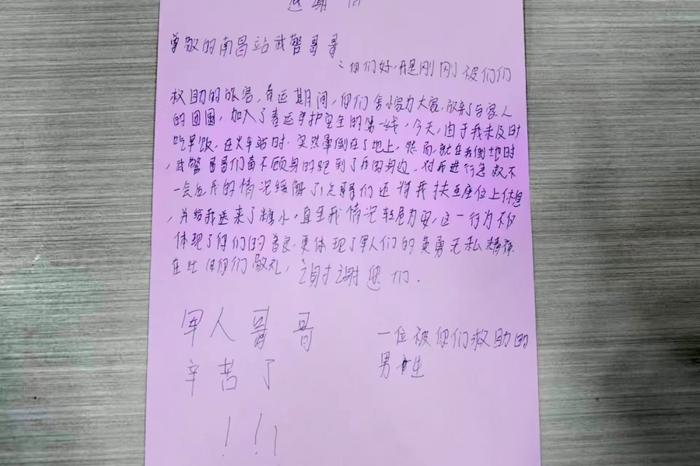 感谢信
尊敬的南昌站武警哥哥
:你们好,我是刚刚被你们
救助的旅客,春运期间,你们舍小家为大家,放弃与家人
的团圆,加入了春运守护安全的第一线,今天,由于我未及时
吃早饭,在火车站时,突然晕倒在了地上,然而,就在我倒地时
武警哥哥们奋不顾身的跑到了我的身边,对我进行急救不
一会后我的情况缓解了,兵哥们还将我扶至座位上休息
,并给我送来了糖水,直至我情况转危为安,这一行为不仅
体现了你们的善良,更体现了军人们的英勇无私精神
在此向你们敬礼,谢谢您们.
军人哥哥
辛苦了
!!!
一位被你们救助的
男生